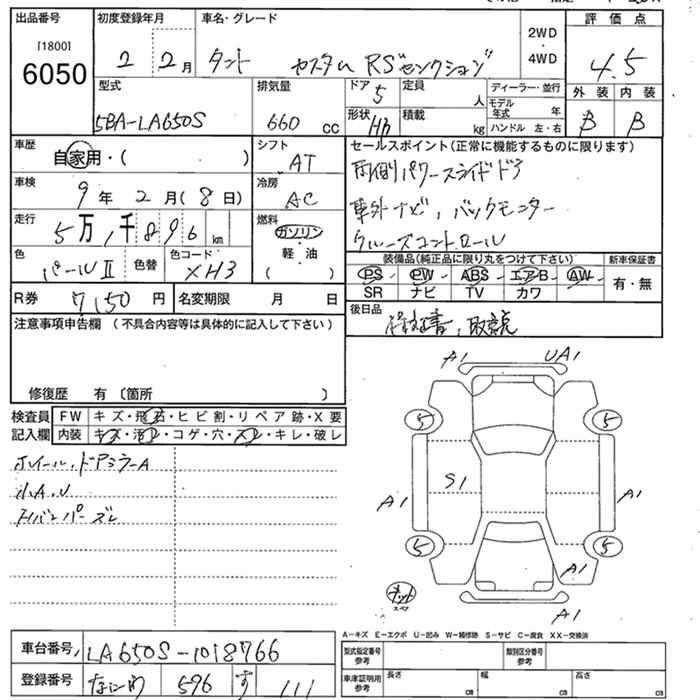 出品番号
[1800]
6050
初度登録年月
2 2月
車名・グレード
タント カスタム RS"セレクション"
2WD
・
4WD
評価点
4.5
外装 内装
B B
型式
5BA-LA650S
排気量
660 cc
ドア 5
形状 HB
定員 人
積載 kg
ディーラー・並行
モデル年式 年
ハンドル 左・右
車歴
自家用・( )
シフト
AT
セールスポイント(正常に機能するものに限ります)
両側パワースライドドア
車外ナビ, バックモニター
クルーズコントロール
車検
9年 2月(8日)
冷房
AC
走行
5万,1千896km
燃料
ガソリン
・
軽油
( )
色
パールⅡ
色替
色コード
XH3
装備品(純正品に限り丸をつけて下さい)
新車保証書
PS PW ABS エアB AW
SR ナビ TV カワ
有・無
R券 7,150円
名変期限 月 日
後日品
保証書, 取説
注意事項申告欄(不具合内容等は具体的に記入して下さい)
修復歴 有〔箇所 〕
検査員記入欄
FW キズ・飛石・ヒビ割・リペア跡・X要
内装 キズ・汚レ・コゲ・穴・スレ・キレ・破レ
ホイール・ドアミラーA
小A.U
Rバンパーズレ
A1 UA1
5 5
S1
A1 A1
5 5
A1
A1
A-キズ E-エクボ U-凹み W-補修跡 S-サビ C-腐食 XX-交換済
車台番号
LA650S-1018766
登録番号
なにわ 596 す 111
型式指定番号
参考
類別区分番号
参考
車庫証明用
参考
長さ cm
幅 cm
高さ cm